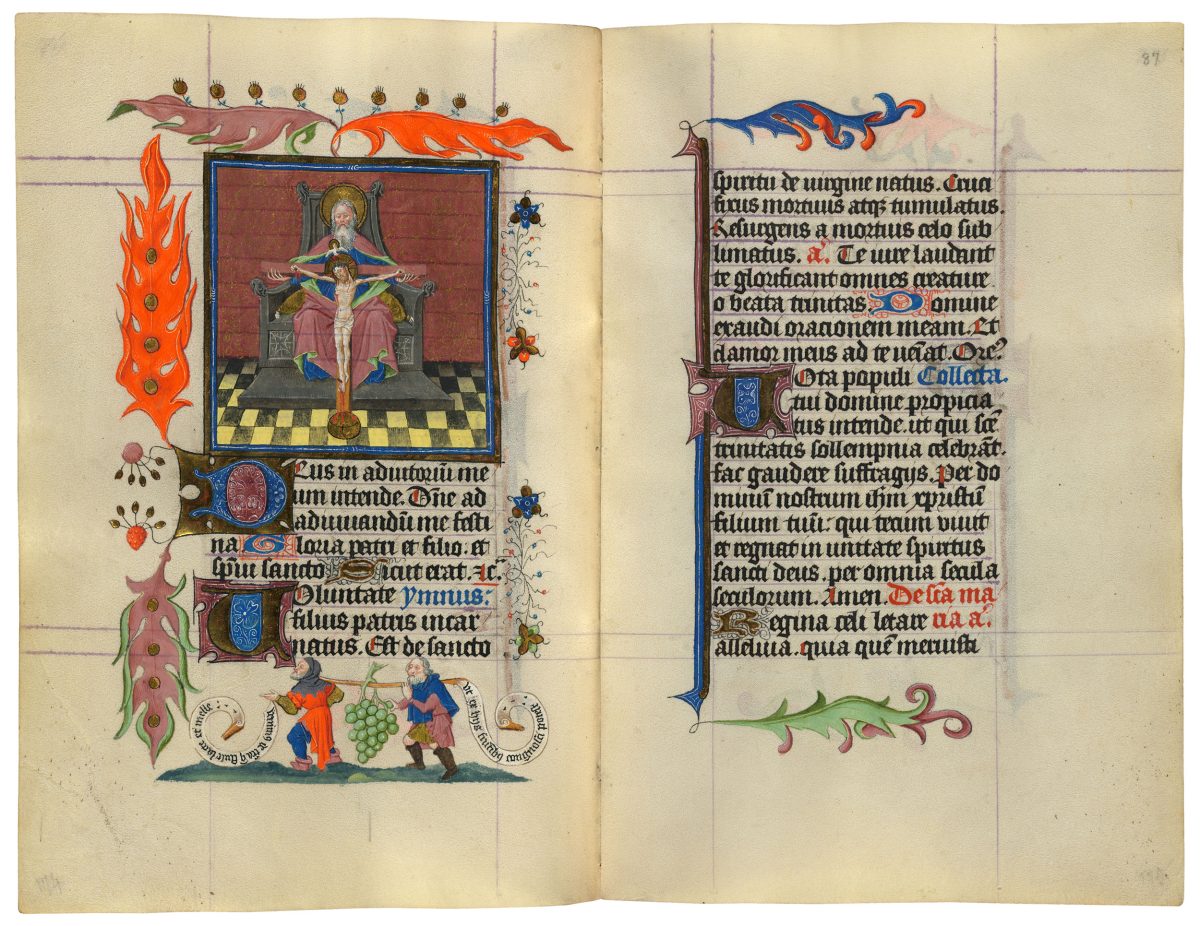 Deus in adiutoriū me
um intende. Dn̄e ad
adiuuandū me festi
na Gloria patri et filio: et
sp̄ui sancto Sicut erat. ꝛc̄.
Uoluntate ymnus:
filius patris incar
natus. Est de sancto
terra q̄ fluit lacte et melle
ut ex hijs fructibꝫ cognosci
87
spiritu de uirgine natus. Cruci
fixus mortuus atqꝫ tumulatus.
Resurgens a mortuis celo sub
limatus. a᷒. Te iure laudant
te glorificant omnes creature
o beata trinitas Domine
exaudi orationem meam. Et
clamor meus ad te ueniat. Ore᷒
Uota populi Collecta.
tui domine propicia
tus intende. ut qui scē
trinitatis sollempnia celebrāt.
fac gaudere suffragijs. Per do
minū nostrum ihm̄ xpristū
filium tuū: qui tecum uiuit
et regnat in unitate spiritus
sancti deus. per omnia secula
seculorum. Amen. De sca ma
Regina celi letare ria a᷒.
alleluia. quia quē meruisti